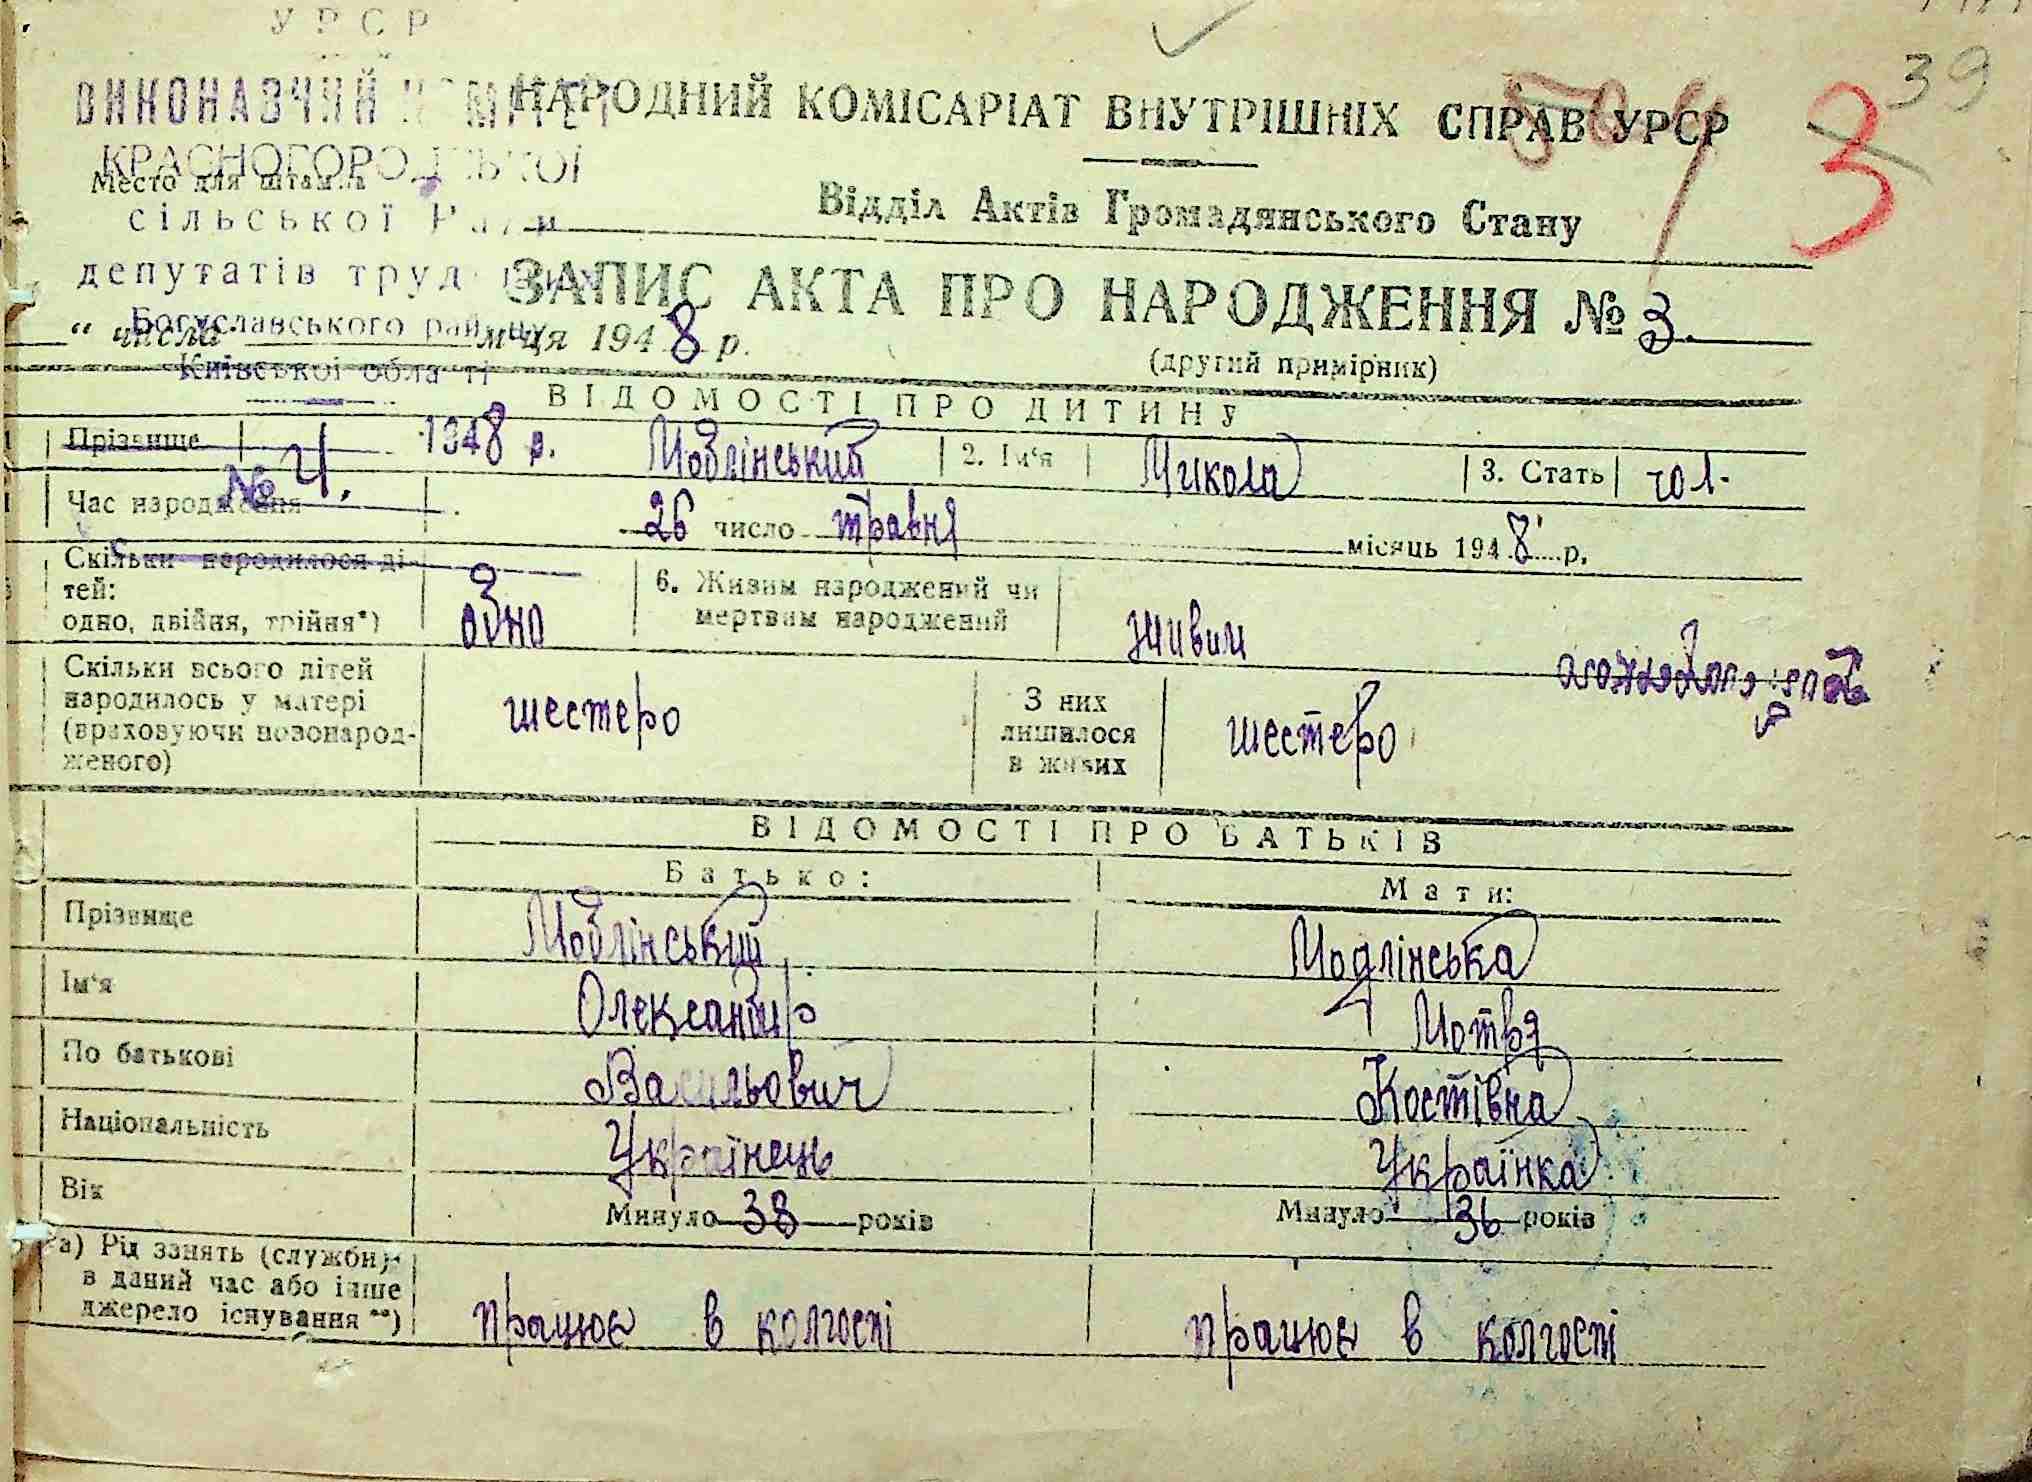 УРСР
ВИКОНАВЧИЙ КОМІТЕТ
НАРОДНИЙ КОМІСАРІАТ ВНУТРІШНІХ СПРАВ УРСР
3
39
КРАСНОГОРОДСЬКОЇ
Место для штампа
сільської Ради
Відділ Актів Громадянського Стану
депутатів трудящих
ЗАПИС АКТА ПРО НАРОДЖЕННЯ № 3
Богуславського району
“ числа місяця 1948 р.
(другий примірник)
Київської області
ВІДОМОСТІ ПРО ДИТИНУ
Прізвище 1948 р. Модлінський 2. Ім'я Микола 3. Стать чол.
№ 4.
Час народження 26 число травня місяць 1948 р.
Скільки народилося дітей:
одно, двійня, трійня*) одно
6. Живим народжений чи
мертвим народжений живим
Скільки всього дітей
народилось у матері
(враховуючи новонарод-
женого) шестеро
З них
лишилося
в живих шестеро
ВІДОМОСТІ ПРО БАТЬКІВ
Батько: Мати:
Прізвище Модлінський Модлінська
Ім'я Олександр Мотря
По батькові Васильович Костівна
Національність Українець Українка
Вік Минуло 38 років Минуло 36 років
а) Рід занять (служби)
в даний час або інше
джерело існування **) працює в колгоспі працює в колгоспі